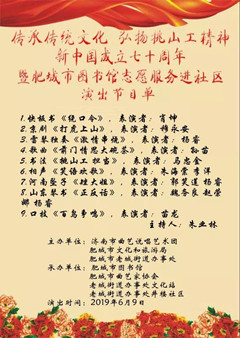 传承传统文化 弘扬桃山工精神
新中国成立七十周年
暨肥城市图书馆志愿服务进社区
演出节目单
1.快板书《绕口令》，表演者：肖坤
2.京剧《打虎上山》，表演者：穆永安
3.葫芦独奏《激情思念》，表演者：杨睿
4.歌曲《前门情思大碗茶》，表演者：孙苗
5.书法《桃山工担当》，表演者：马忠金
6.相声《笑语欢歌》，表演者：朱海棠 李洋
7.河南坠子《拉大姐》，表演者：郭笑道 杨睿
8.山东琴书《正反话》，表演者：魏秀良 赵荣娜 杨睿
9.口技《百鸟争鸣》，表演者：苗龙
主持人：朱业林
主办单位：济南市曲艺说唱艺术团
肥城市文化和旅游局
老城街道办事处
承办单位：肥城市图书馆
肥城市曲艺家协会
老城街道办事处文化站
老城街道办事处井楼社区
演出时间：2019年6月9日